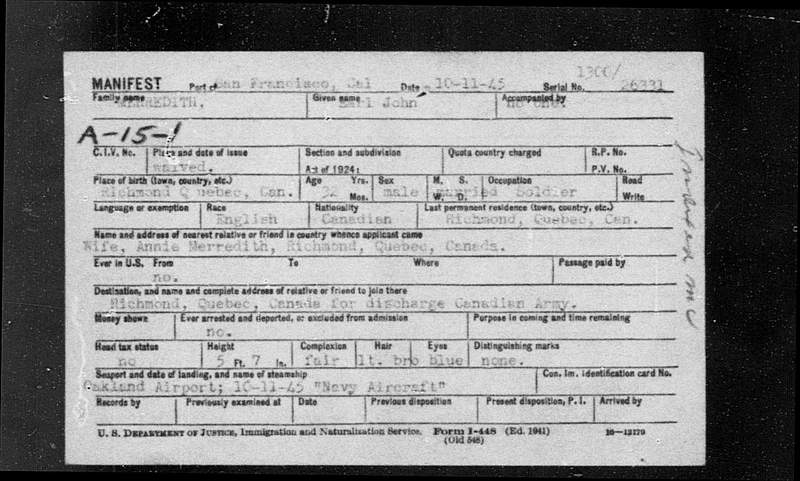 1300/
MANIFEST Port of San Francisco, Cal Date 10-11-45 Serial No. 26331
Family name MEREDITH. Given name Earl John Accompanied by no one.
A-15-1
C.I.V. No. Place and date of issue Section and subdivision Quota country charged R.P. No.
waived. Act of 1924: P.V. No.
Place of birth (town, country, etc.) Age Yrs. Sex M. S. Occupation Read
Richmond Quebec, Can. 32 Mos. male W. D. married Soldier Write
Language or exemption Race Nationality Last permanent residence (town, country, etc.)
English Canadian Richmond, Quebec, Can.
Name and address of nearest relative or friend in country whence applicant came
Wife, Annie Merredith, Richmond, Quebec, Canada.
Ever in U.S. From To Where Passage paid by
no.
Destination, and name and complete address of relative or friend to join there
Richmond, Quebec, Canada for discharge Canadian Army.
Money shown Ever arrested and deported, or excluded from admission Purpose in coming and time remaining
no.
Head tax status Height Complexion Hair Eyes Distinguishing marks
no 5 Ft. 7 In. fair lt. bro blue none.
Seaport and date of landing, and name of steamship Con. Im. Identification card No.
Oakland Airport; 10-11-45 "Navy Aircraft"
Records by Previously examined at Date Previous disposition Present disposition, P. I. Arrived by
U. S. DEPARTMENT OF JUSTICE, Immigration and Naturalization Service. Form I-448 (Ed. 1941) 16—12179
(Old 548)